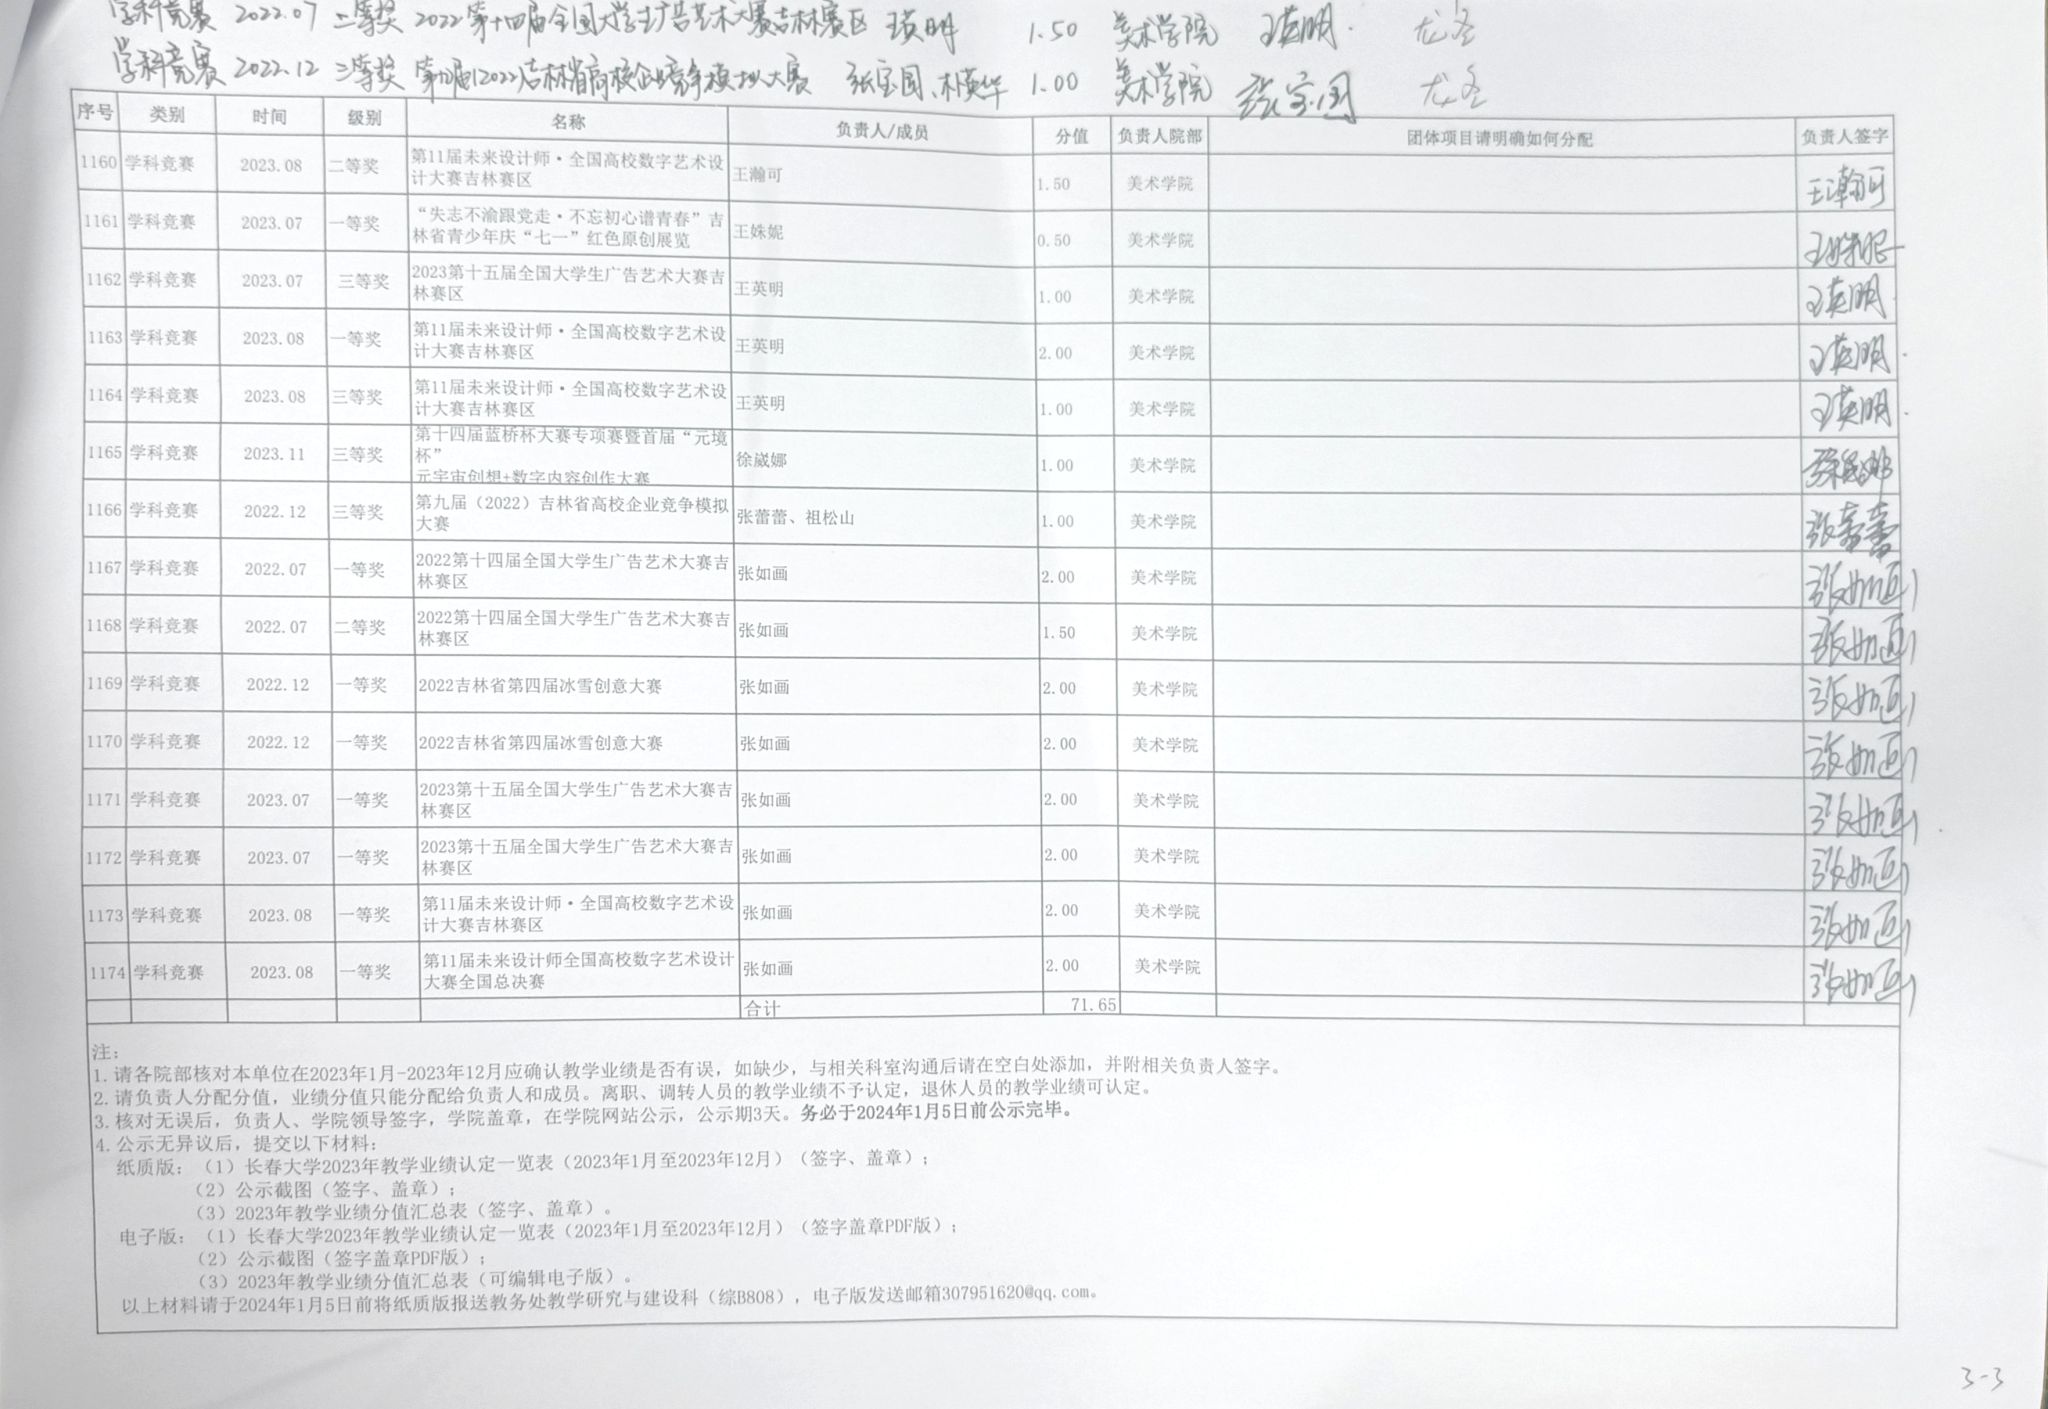 学科竞赛 2022.07 二等奖 2022第十四届全国大学生广告艺术大赛吉林赛区 王英明 1.50 美术学院 王英明
学科竞赛 2022.12 三等奖 第九届(2022)吉林省高校企业竞争模拟大赛 张宝国、朴英华 1.00 美术学院 张宝国
序号 类别 时间 级别 名称 负责人/成员 分值 负责人院部 团体项目请明确如何分配 负责人签字
1160 学科竞赛 2023.08 二等奖 第11届未来设计师·全国高校数字艺术设 王瀚可 1.50 美术学院 王瀚可
计大赛吉林赛区
1161 学科竞赛 2023.07 一等奖 “失志不渝跟党走·不忘初心谱青春”吉 王姝妮 0.50 美术学院 王姝妮
林省青少年庆“七一”红色原创展览
1162 学科竞赛 2023.07 三等奖 2023第十五届全国大学生广告艺术大赛吉 王英明 1.00 美术学院 王英明
林赛区
1163 学科竞赛 2023.08 一等奖 第11届未来设计师·全国高校数字艺术设 王英明 2.00 美术学院 王英明
计大赛吉林赛区
1164 学科竞赛 2023.08 三等奖 第11届未来设计师·全国高校数字艺术设 王英明 1.00 美术学院 王英明
计大赛吉林赛区
1165 学科竞赛 2023.11 三等奖 第十四届蓝桥杯大赛专项赛暨首届“元境 徐崴娜 1.00 美术学院 徐崴娜
杯”
元宇宙创想+数字内容创作大赛
1166 学科竞赛 2022.12 三等奖 第九届（2022）吉林省高校企业竞争模拟 张蕾蕾、祖松山 1.00 美术学院 张蕾蕾
大赛
1167 学科竞赛 2022.07 一等奖 2022第十四届全国大学生广告艺术大赛吉 张如画 2.00 美术学院 张如画
林赛区
1168 学科竞赛 2022.07 二等奖 2022第十四届全国大学生广告艺术大赛吉 张如画 1.50 美术学院 张如画
林赛区
1169 学科竞赛 2022.12 一等奖 2022吉林省第四届冰雪创意大赛 张如画 2.00 美术学院 张如画
1170 学科竞赛 2022.12 一等奖 2022吉林省第四届冰雪创意大赛 张如画 2.00 美术学院 张如画
1171 学科竞赛 2023.07 一等奖 2023第十五届全国大学生广告艺术大赛吉 张如画 2.00 美术学院 张如画
林赛区
1172 学科竞赛 2023.07 一等奖 2023第十五届全国大学生广告艺术大赛吉 张如画 2.00 美术学院 张如画
林赛区
1173 学科竞赛 2023.08 一等奖 第11届未来设计师·全国高校数字艺术设 张如画 2.00 美术学院 张如画
计大赛吉林赛区
1174 学科竞赛 2023.08 一等奖 第11届未来设计师全国高校数字艺术设计 张如画 2.00 美术学院 张如画
大赛全国总决赛
合计 71.65
注：
1.请各院部核对本单位在2023年1月-2023年12月应确认教学业绩是否有误，如缺少，与相关科室沟通后请在空白处添加，并附相关负责人签字。
2.请负责人分配分值，业绩分值只能分配给负责人和成员。离职、调转人员的教学业绩不予认定，退休人员的教学业绩可认定。
3.核对无误后，负责人、学院领导签字，学院盖章，在学院网站公示，公示期3天。务必于2024年1月5日前公示完毕。
4.公示无异议后，提交以下材料：
纸质版：（1）长春大学2023年教学业绩认定一览表（2023年1月至2023年12月）（签字、盖章）；
（2）公示截图（签字、盖章）；
（3）2023年教学业绩分值汇总表（签字、盖章）。
电子版：（1）长春大学2023年教学业绩认定一览表（2023年1月至2023年12月）（签字盖章PDF版）；
（2）公示截图（签字盖章PDF版）；
（3）2023年教学业绩分值汇总表（可编辑电子版）。
以上材料请于2024年1月5日前将纸质版报送教务处教学研究与建设科（综B808），电子版发送邮箱307951620@qq.com。
3-3